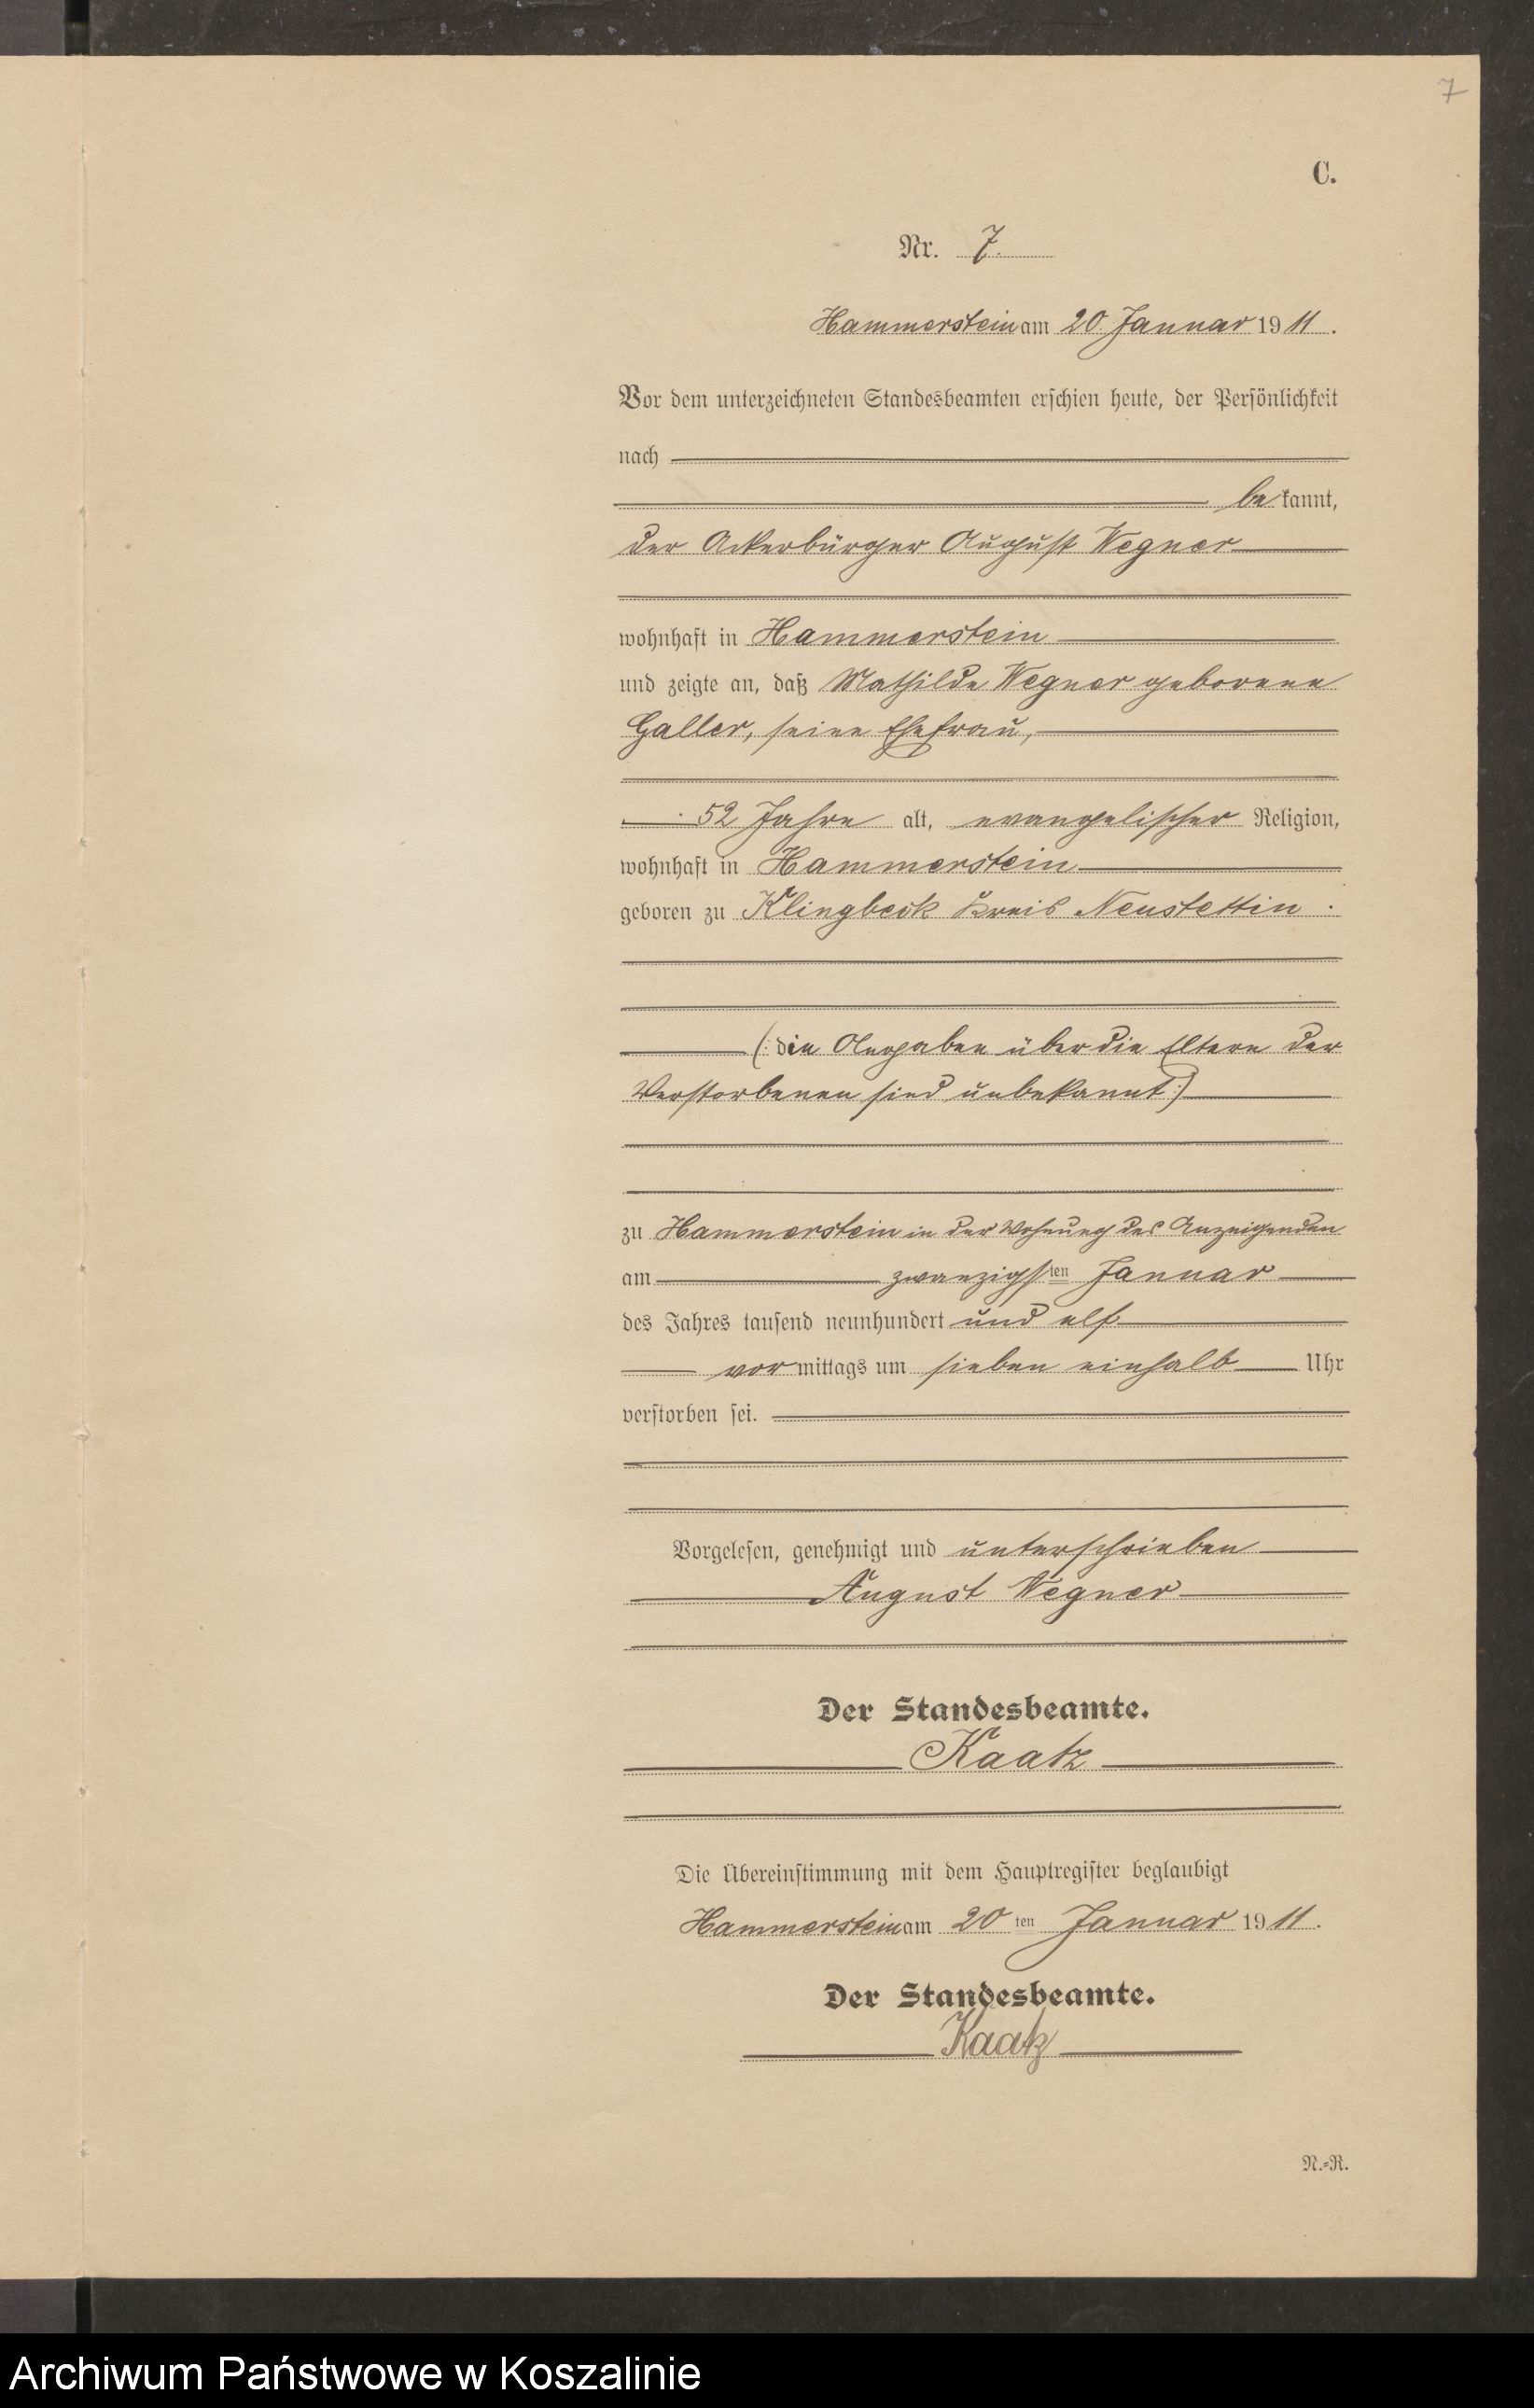 7
C.
Nr. 7.
Hammerstein am 20. Januar 1911.
Vor dem unterzeichneten Standesbeamten erschien heute, der Persönlichkeit
nach
be kannt,
der Ackerbürger August Wegner
wohnhaft in Hammerstein
und zeigte an, daß Mathilde Wegner geborene
Galler, seine Ehefrau,
52 Jahre alt, evangelischer Religion,
wohnhaft in Hammerstein
geboren zu Klingbeck Kreis Neustettin
(: die Angaben über die Eltern der
Verstorbenen sind unbekannt :)
zu Hammerstein in der Wohnung des Anzeigenden
am zwanzigsten Januar
des Jahres tausend neunhundert und elf
vor mittags um sieben einhalb Uhr
verstorben sei.
Vorgelesen, genehmigt und unterschrieben
August Wegner
Der Standesbeamte.
Kaatz
Die Übereinstimmung mit dem Hauptregister beglaubigt
Hammerstein am 20 ten Januar 1911.
Der Standesbeamte.
Kaatz
N.=R.
Archiwum Państwowe w Koszalinie